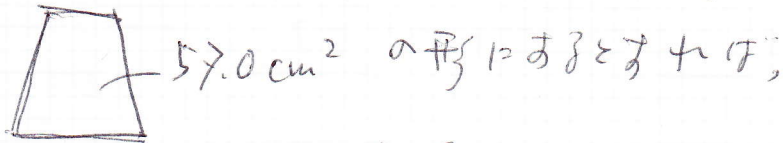 57.0 cm² の形にするとすれば、